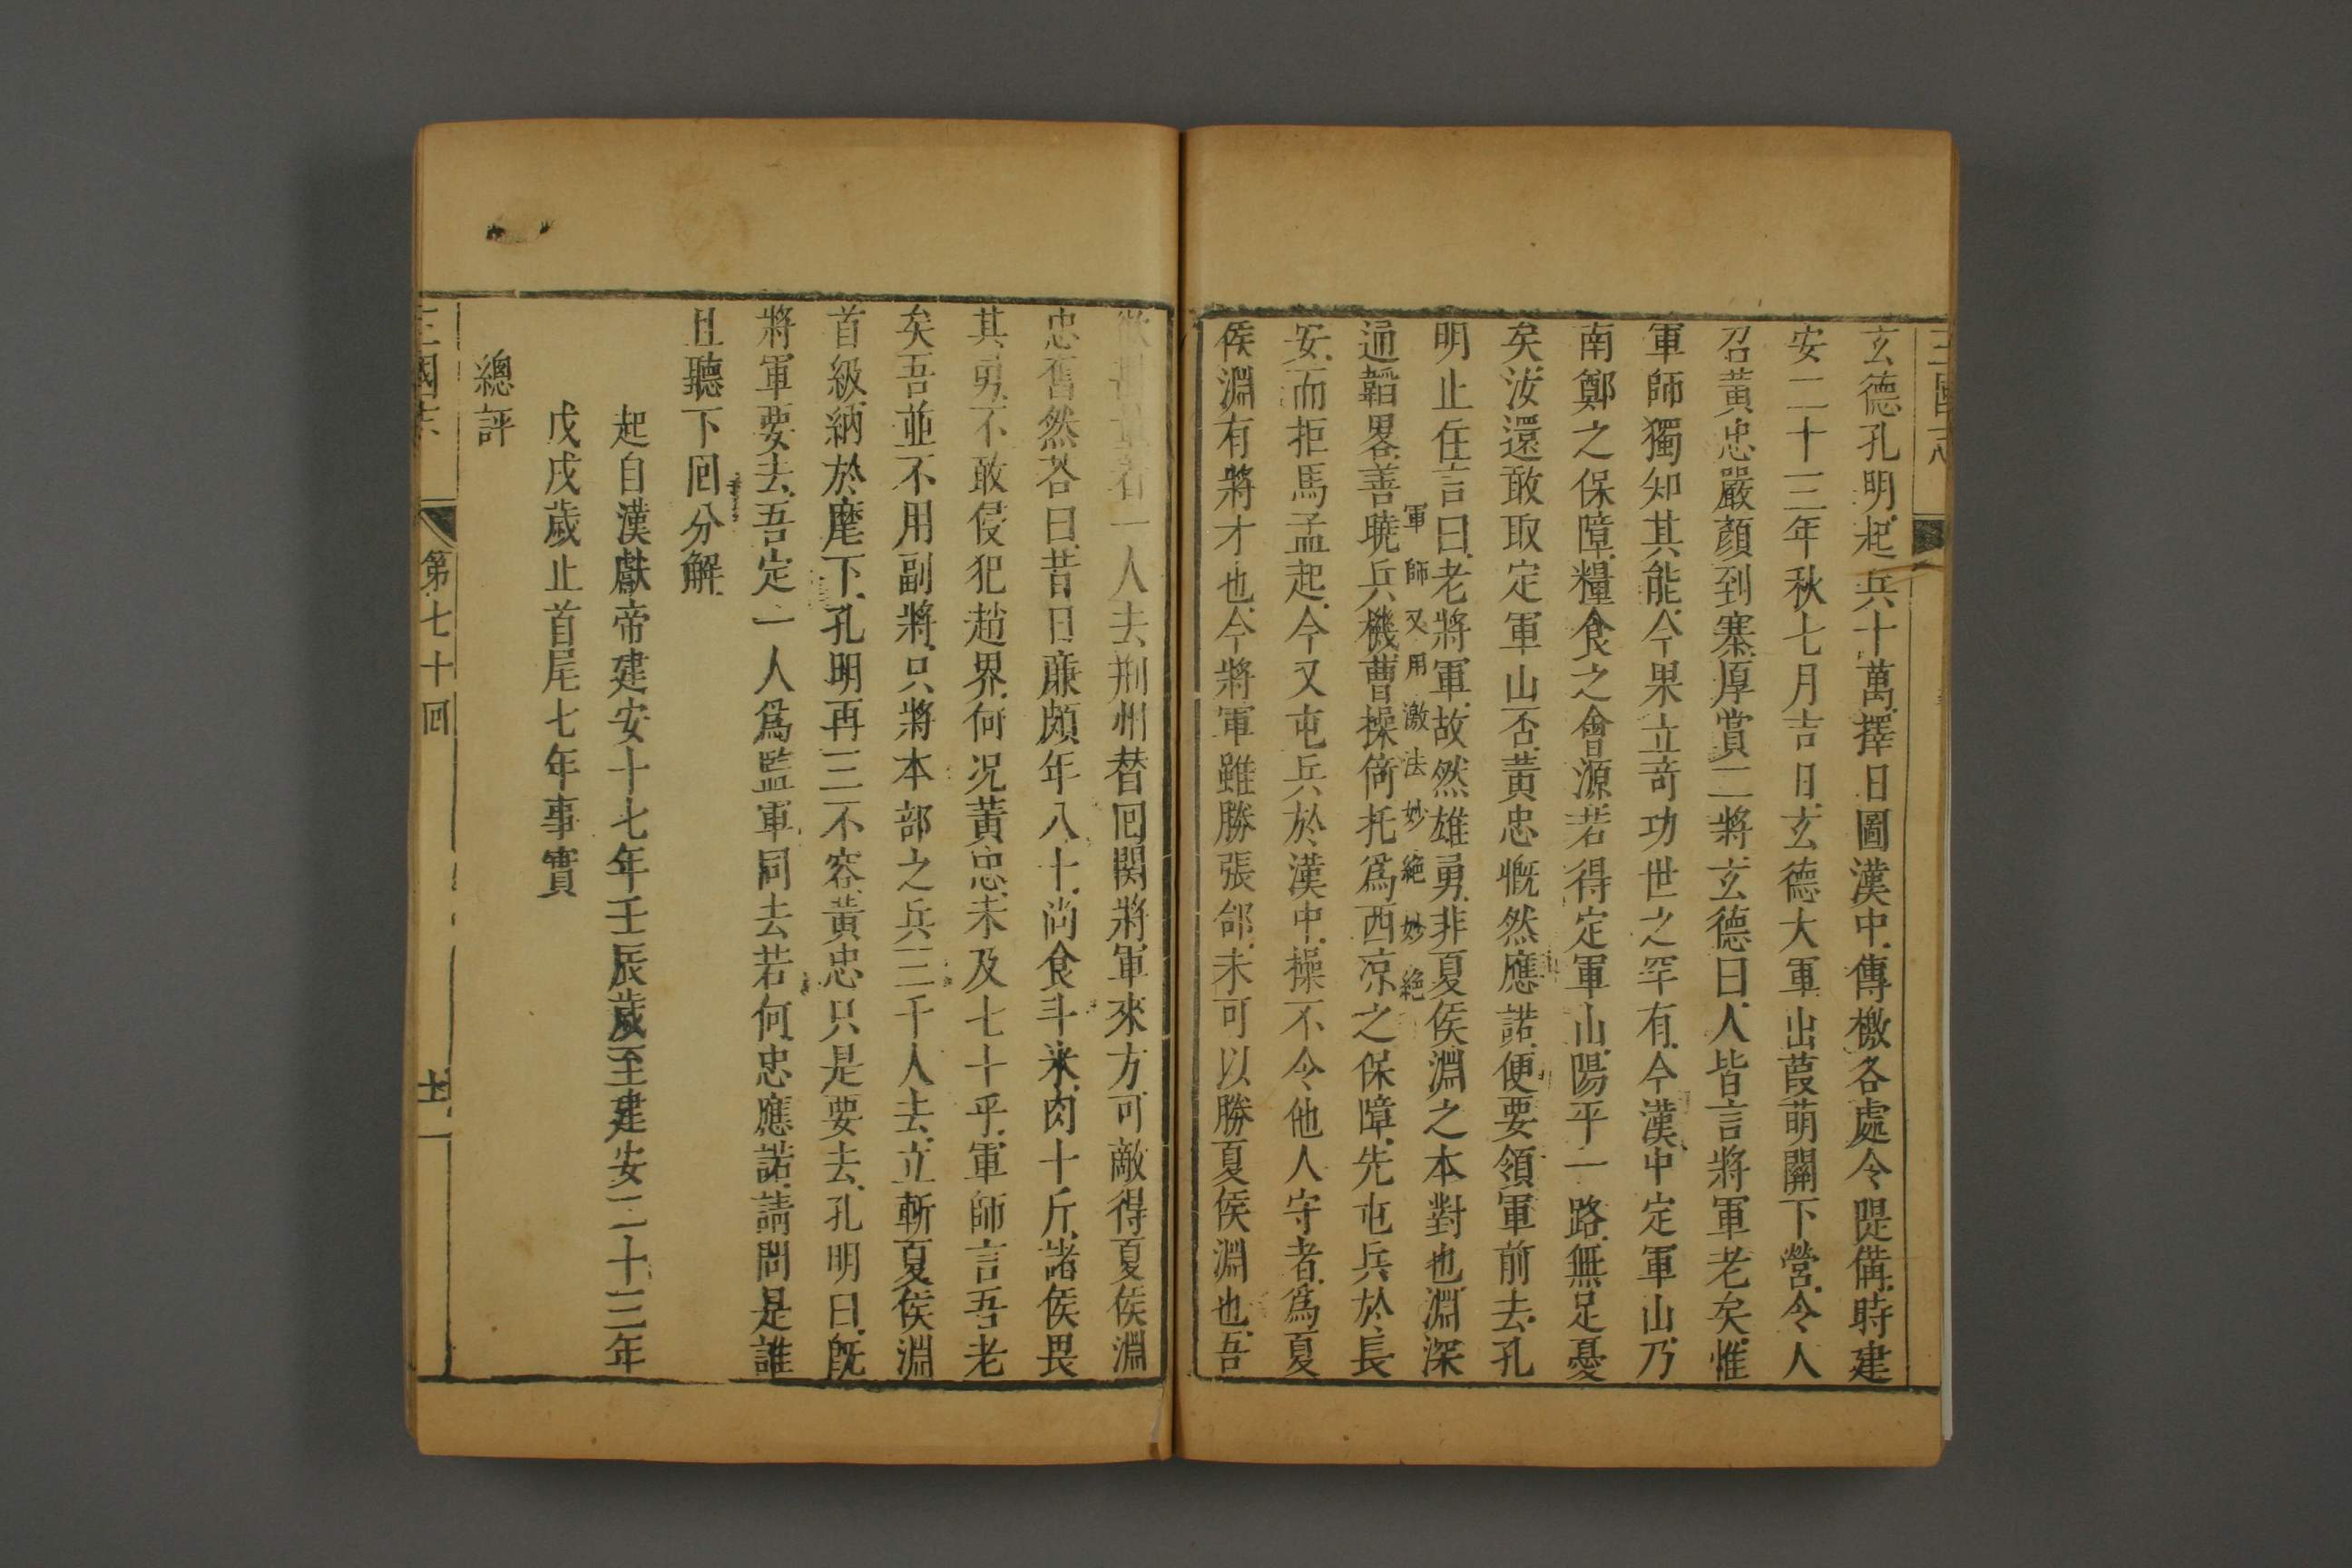 三國志
玄德孔明起兵十萬擇日圖漢中傳檄各處令隄備時建
安二十三年秋七月吉日玄德大軍出葭萌關下營令人
召黃忠嚴顏到寨厚賞二將玄德曰人皆言將軍老矣惟
軍師獨知其能今果立奇功世之罕有今漢中定軍山乃
南鄭之保障糧食之會源若得定軍山陽平一路無足憂
矣汝還敢取定軍山否黃忠慨然應諾便要領軍前去孔
明止住言曰老將軍故然雄勇非夏侯淵之本對也淵深
軍師又用激法妙絕妙絕
通韜畧善曉兵機曹操倚托爲西凉之保障先屯兵於長
安而拒馬孟起今又屯兵於漢中操不令他人守者爲夏
侯淵有將才也今將軍雖勝張郃未可以勝夏侯淵也吾
一人去荆州替回関將軍來方可敵得夏侯淵
忠奮然答曰昔日廉頗年八十尚食斗米肉十斤諸侯畏
其勇不敢侵犯趙界何况黃忠未及七十乎軍師言吾老
矣吾並不用副將只將本部之兵三千人去立斬夏侯淵
首級納於麾下孔明再三不容黃忠只是要去孔明曰旣
將軍要去吾定一人爲監軍同去若何忠應諾請問是誰
且聽下囬分解
起自漢獻帝建安十七年壬辰歲至建安二十三年
戊戌歲止首尾七年事實
總評
三國志 第七十囬 十一